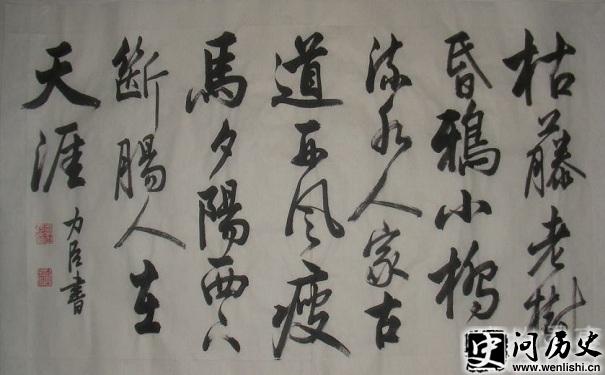 枯藤老樹
昏鴉小橋
流水人家古
道西风瘦
馬夕陽西下
斷腸人在
天涯
力臣書
史 问历史
www.wenlishi.cn